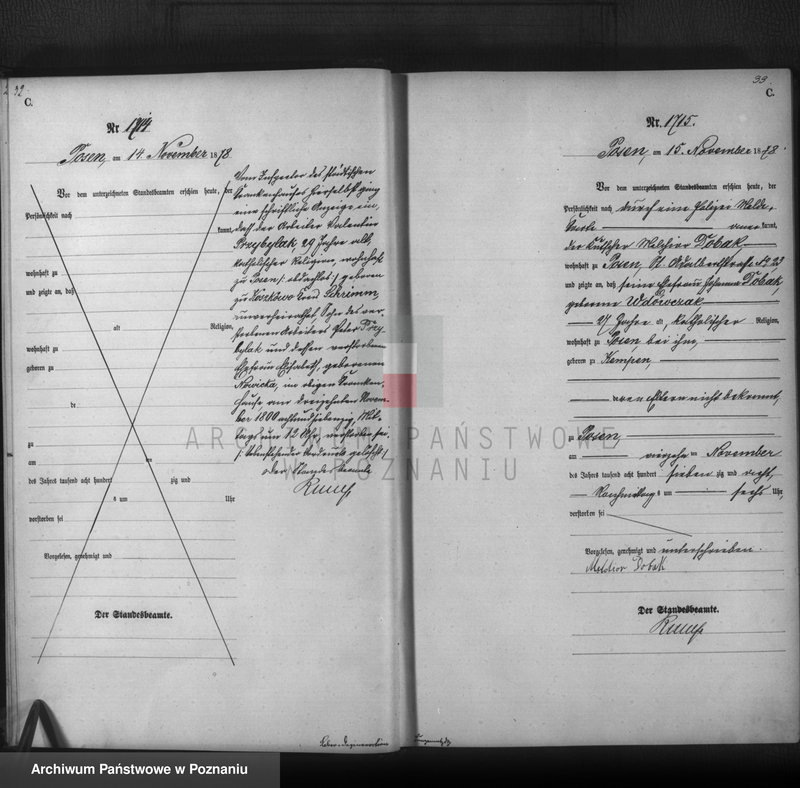 32
C.
Nr. 1714
Posen, am 14 November 1878
Vor dem unterzeichneten Standesbeamten erschien heute, der
Persönlichkeit nach
kannt,
wohnhaft zu
und zeigte an, daß
alt Religion,
wohnhaft zu
geboren zu
de
zu
am ten
des Jahres tausend acht hundert zig und
um Uhr
verstorben sei
Vorgelesen, genehmigt und
Der Standesbeamte.
Vom Inspector des städtischen
Krankenhauses hierselbst ging
eine schriftliche Anzeige ein,
daß der Arbeiter Valentin
Przybylak 29 Jahre alt,
katholischer Religion, wohnhaft
zu Posen /: obdachlos :/ geboren
zu Kreis Schrimm
unverheirathet, Sohn des ver-
storbenen Arbeiters Peter Przy-
bylak und dessen verstorbene
Ehefrau Elisabeth, geborenen
Nowicka, im obigen Kranken-
hause, am dreizehnten Novem-
ber 1800 achtundsiebenzig, Mit-
tags um 12 Uhr, verstorben sei
/: Vorstehender Vordruck gelöscht :/
Der Standesbeamte
33
C.
Nr. 1715.
Posen, am 15. November 1878
Vor dem unterzeichneten Standesbeamten erschien heute, der
Persönlichkeit nach durch eine Polizei Melde-
karte aner kannt,
der Kutscher Melchior Dobak
wohnhaft zu Posen, St. Adalbertstraße No 23
und zeigte an, daß seine Ehefrau Johanna Dobak
geborene Wdowczak
27 Jahre alt, katholischer Religion,
wohnhaft zu Posen bei ihm,
geboren zu Kempen,
deren Eltern nicht bekannt,
zu Posen,
am vierzehn ten November
des Jahres tausend acht hundert sieben zig und acht,
Nachmittags um sechs Uhr,
verstorben sei
Vorgelesen, genehmigt und unterschrieben.
Melchior Dobak
Der Standesbeamte.
ARCHIWUM PAŃSTWOWE
W POZNANIU
Archiwum Państwowe w Poznaniu